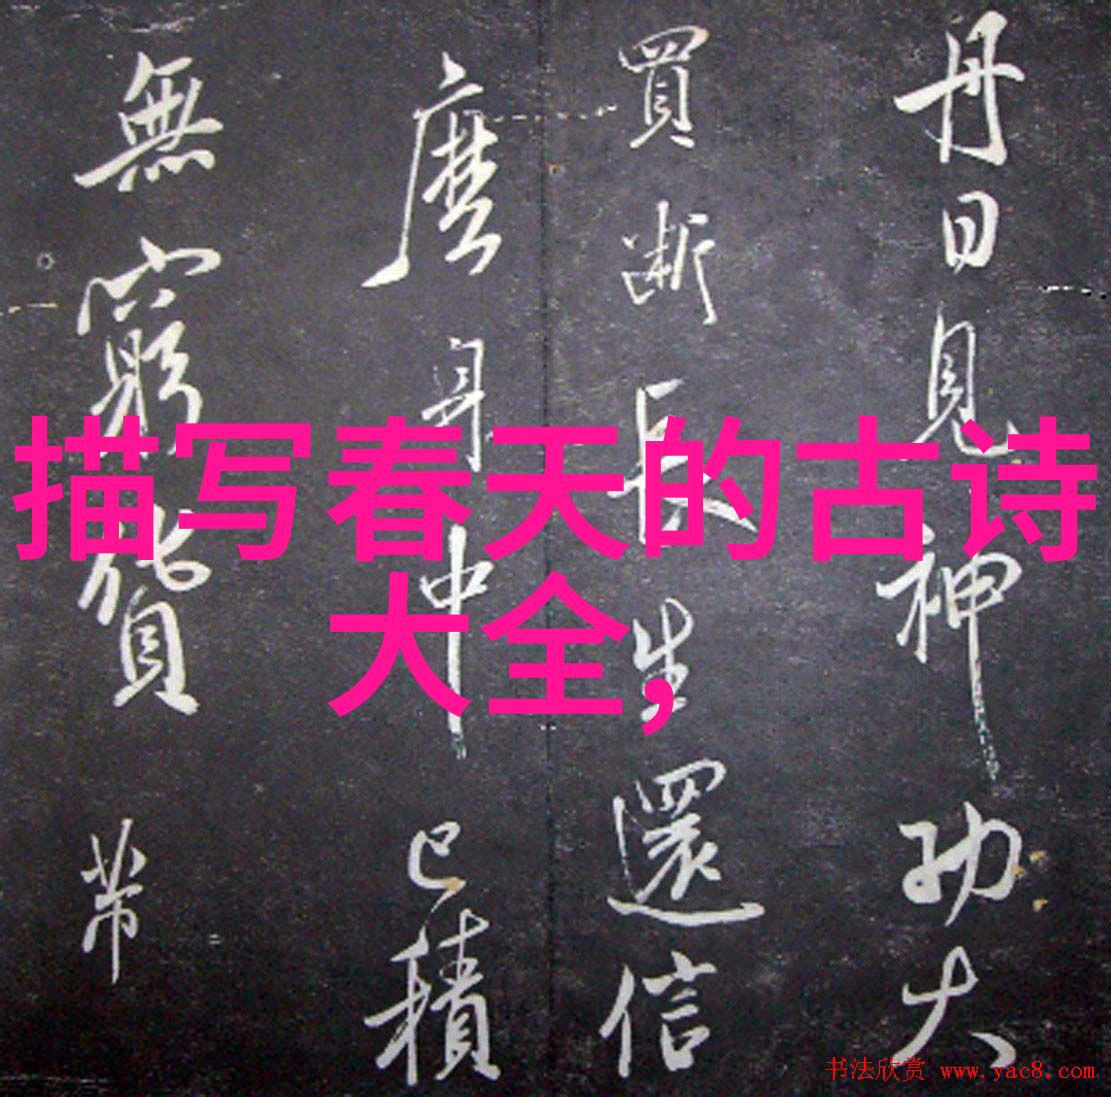 丹日見神功大
買斷長生還信
麼身中已積
無窮貨帶
描写春天的古诗
大全,
书法欣赏 www.yac8.com